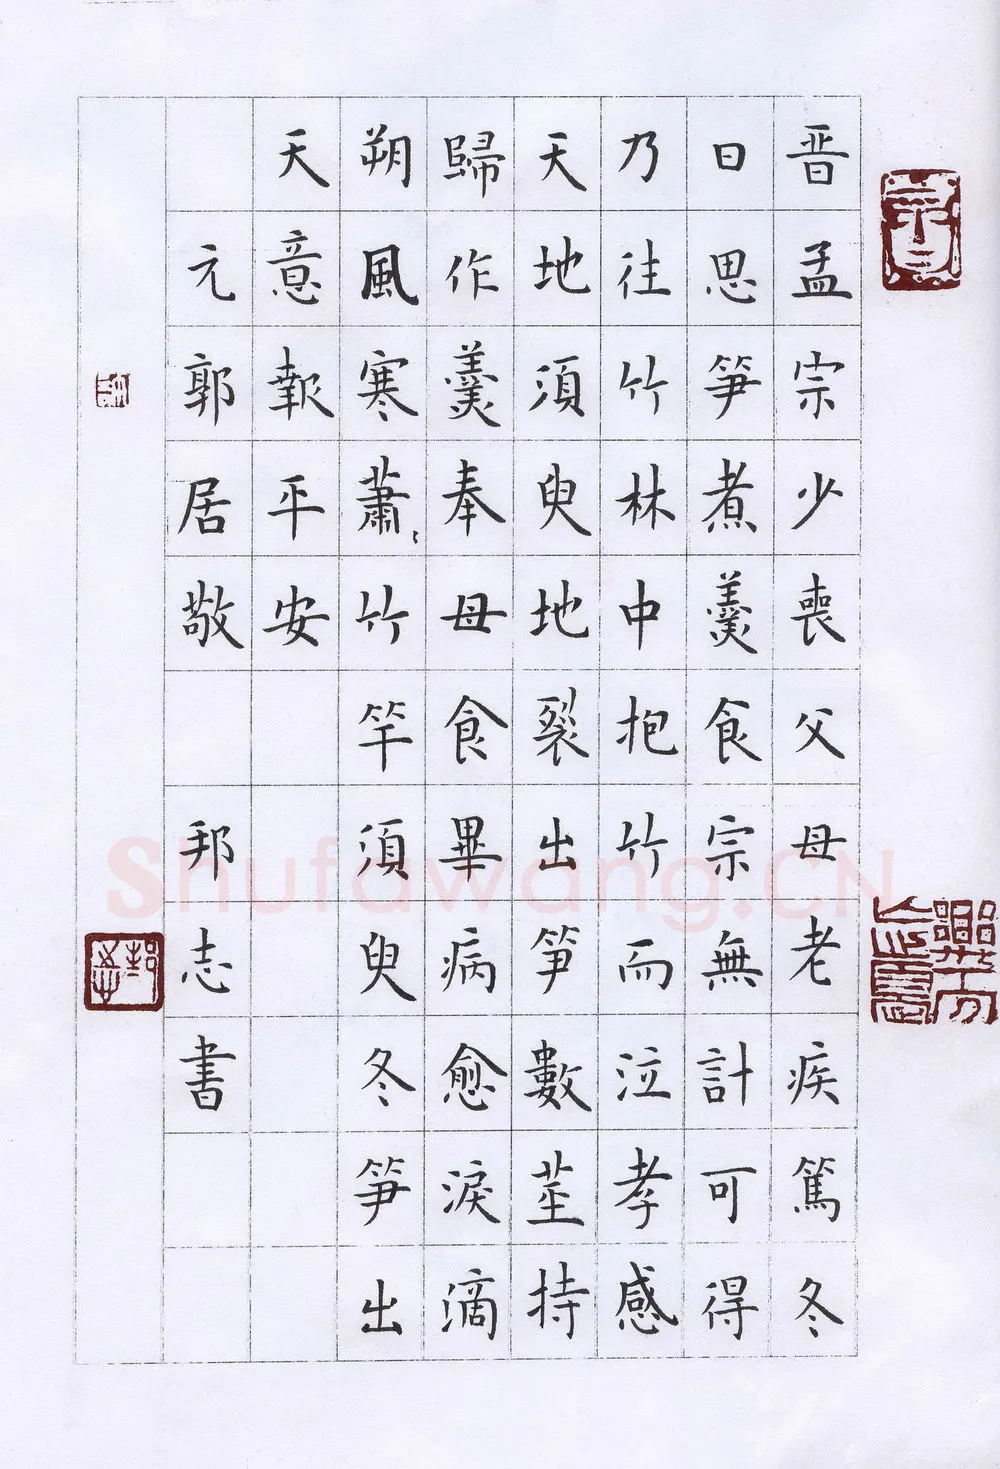 晋孟宗少喪父母老疾篤冬
日思笋煮羹食宗無計可得
乃往竹林中抱竹而泣孝感
天地須臾地裂出笋數莖持
歸作羹奉母食畢病愈淚滴
朔風寒蕭〻竹竿須臾冬笋出
天意報平安
元郭居敬 邦志書
Shufawang.CN